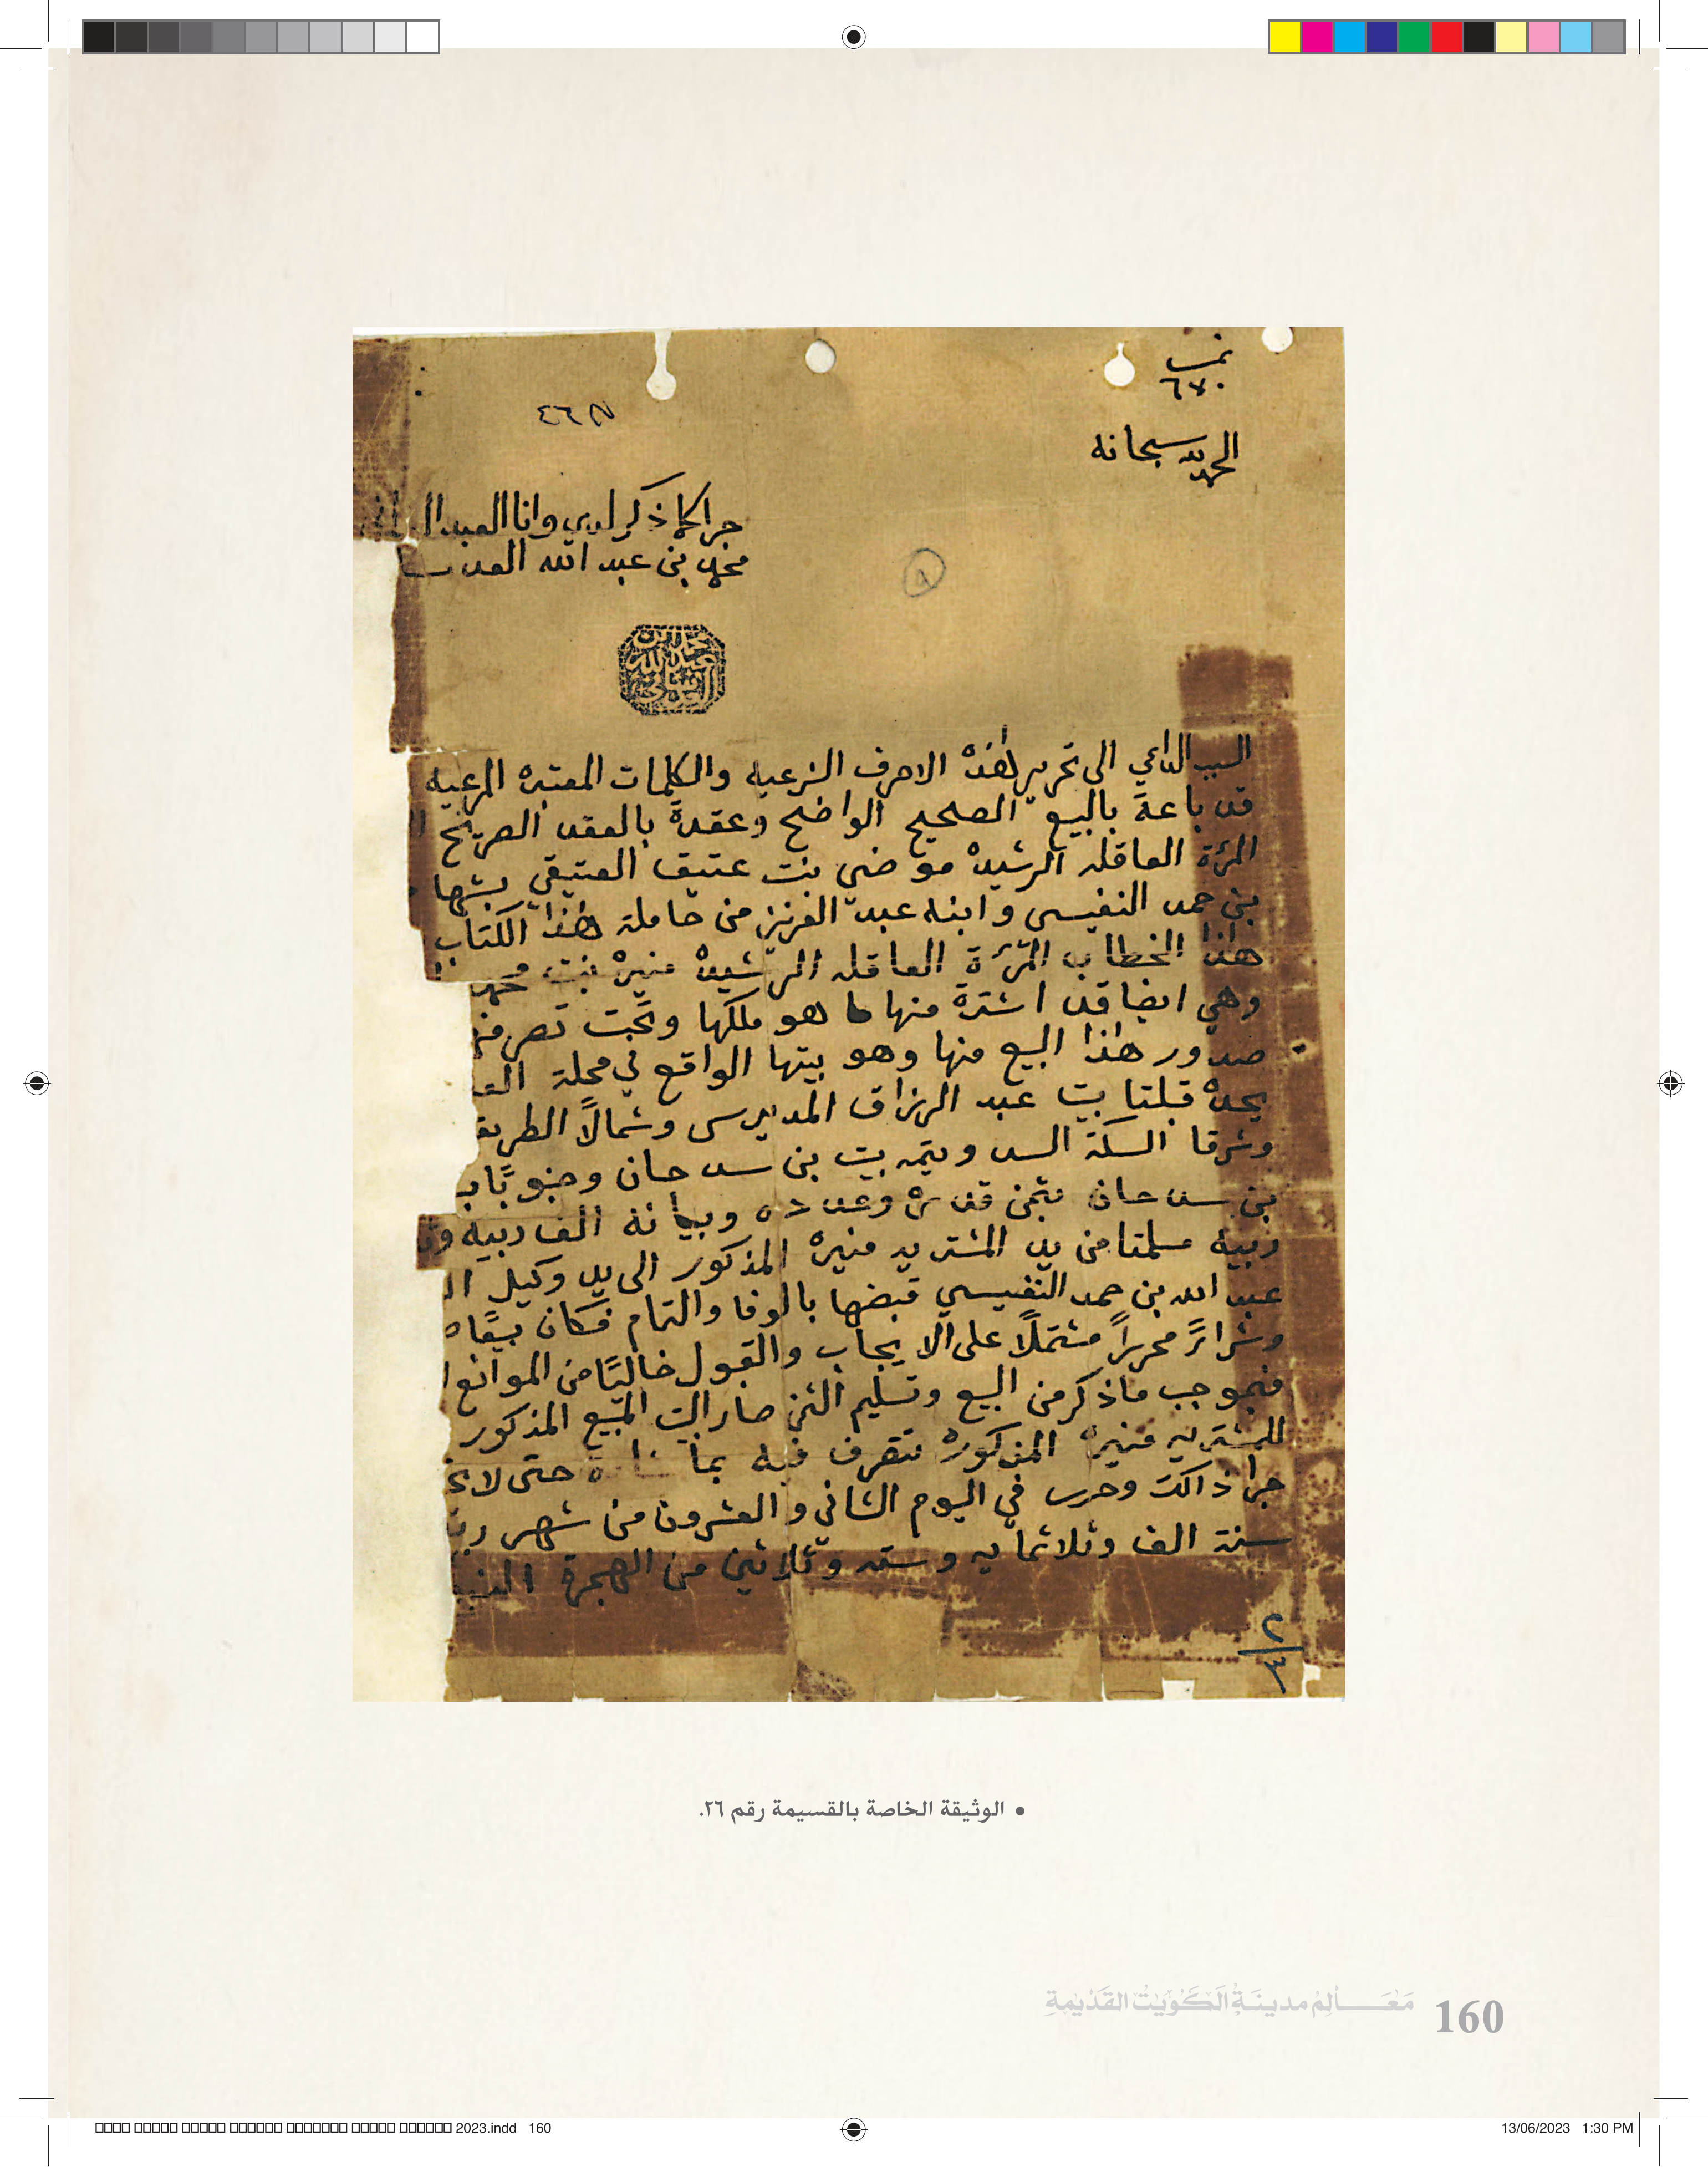 نمبر
٦٧٠
الحمد لله سبحانه
جرا كما ذكر لدي وانا العبد
محمد بن عبد الله العدساني
محمد ابن
عبد الله
العدساني
السبب الداعي الى تحرير هٰذه الاحرف الشرعيه والكلمات المعتبره المرعيه
قد باعة بالبيع الصحيح الواضح وعقدة بالعقد الصريح
المرئة العاقله الرشيده موضي بنت عتيق العتيقي بشهادة
بن حمد النفيسي وابنه عبد العزيز من حاملة هٰذا الكتاب
هٰذا الخطاب المرئة العاقله الرشيده منيره بنت محمد
وهي ايضا قد اشترة منها ما هو ملكها وتحت تصرفها
صدور هٰذا البيع منها وهو بيتها الواقع في محلة
يحده قبلتا بيت عبد الرزاق المديرس وشمالاً الطريق
وشرقا السكة السد ويتمه بيت بن سدحان وجنوبًا
بن سدحان بثمن قدره وعدده وبيانه الف ربية
ربية سلمتا من يد المشتريه منيره المذكور الى يد وكيل
عبد الله بن حمد النفيسي قبضها بالوفا والتمام فكان بيعًا
وشرائً محرراً مشتملاً على الايجاب والقبول خاليًا من الموانع
فبموجب ما ذكر من البيع وتسليم الثمن صار البيت المبيع المذكور
للمشتريه منيره المذكوره تتصرف فيه بما حتى لا
جرا ذالك وحرر في اليوم الثاني والعشرون من شهر
سنة الف وثلاثمايه وسته وثلاثين من الهجرة
٢/٤
• الوثيقة الخاصة بالقسيمة رقم ٢٦.
مَعَالِم مدينَة الكوَيت القَديمة 160
2023.indd 160
13/06/2023 1:30 PM